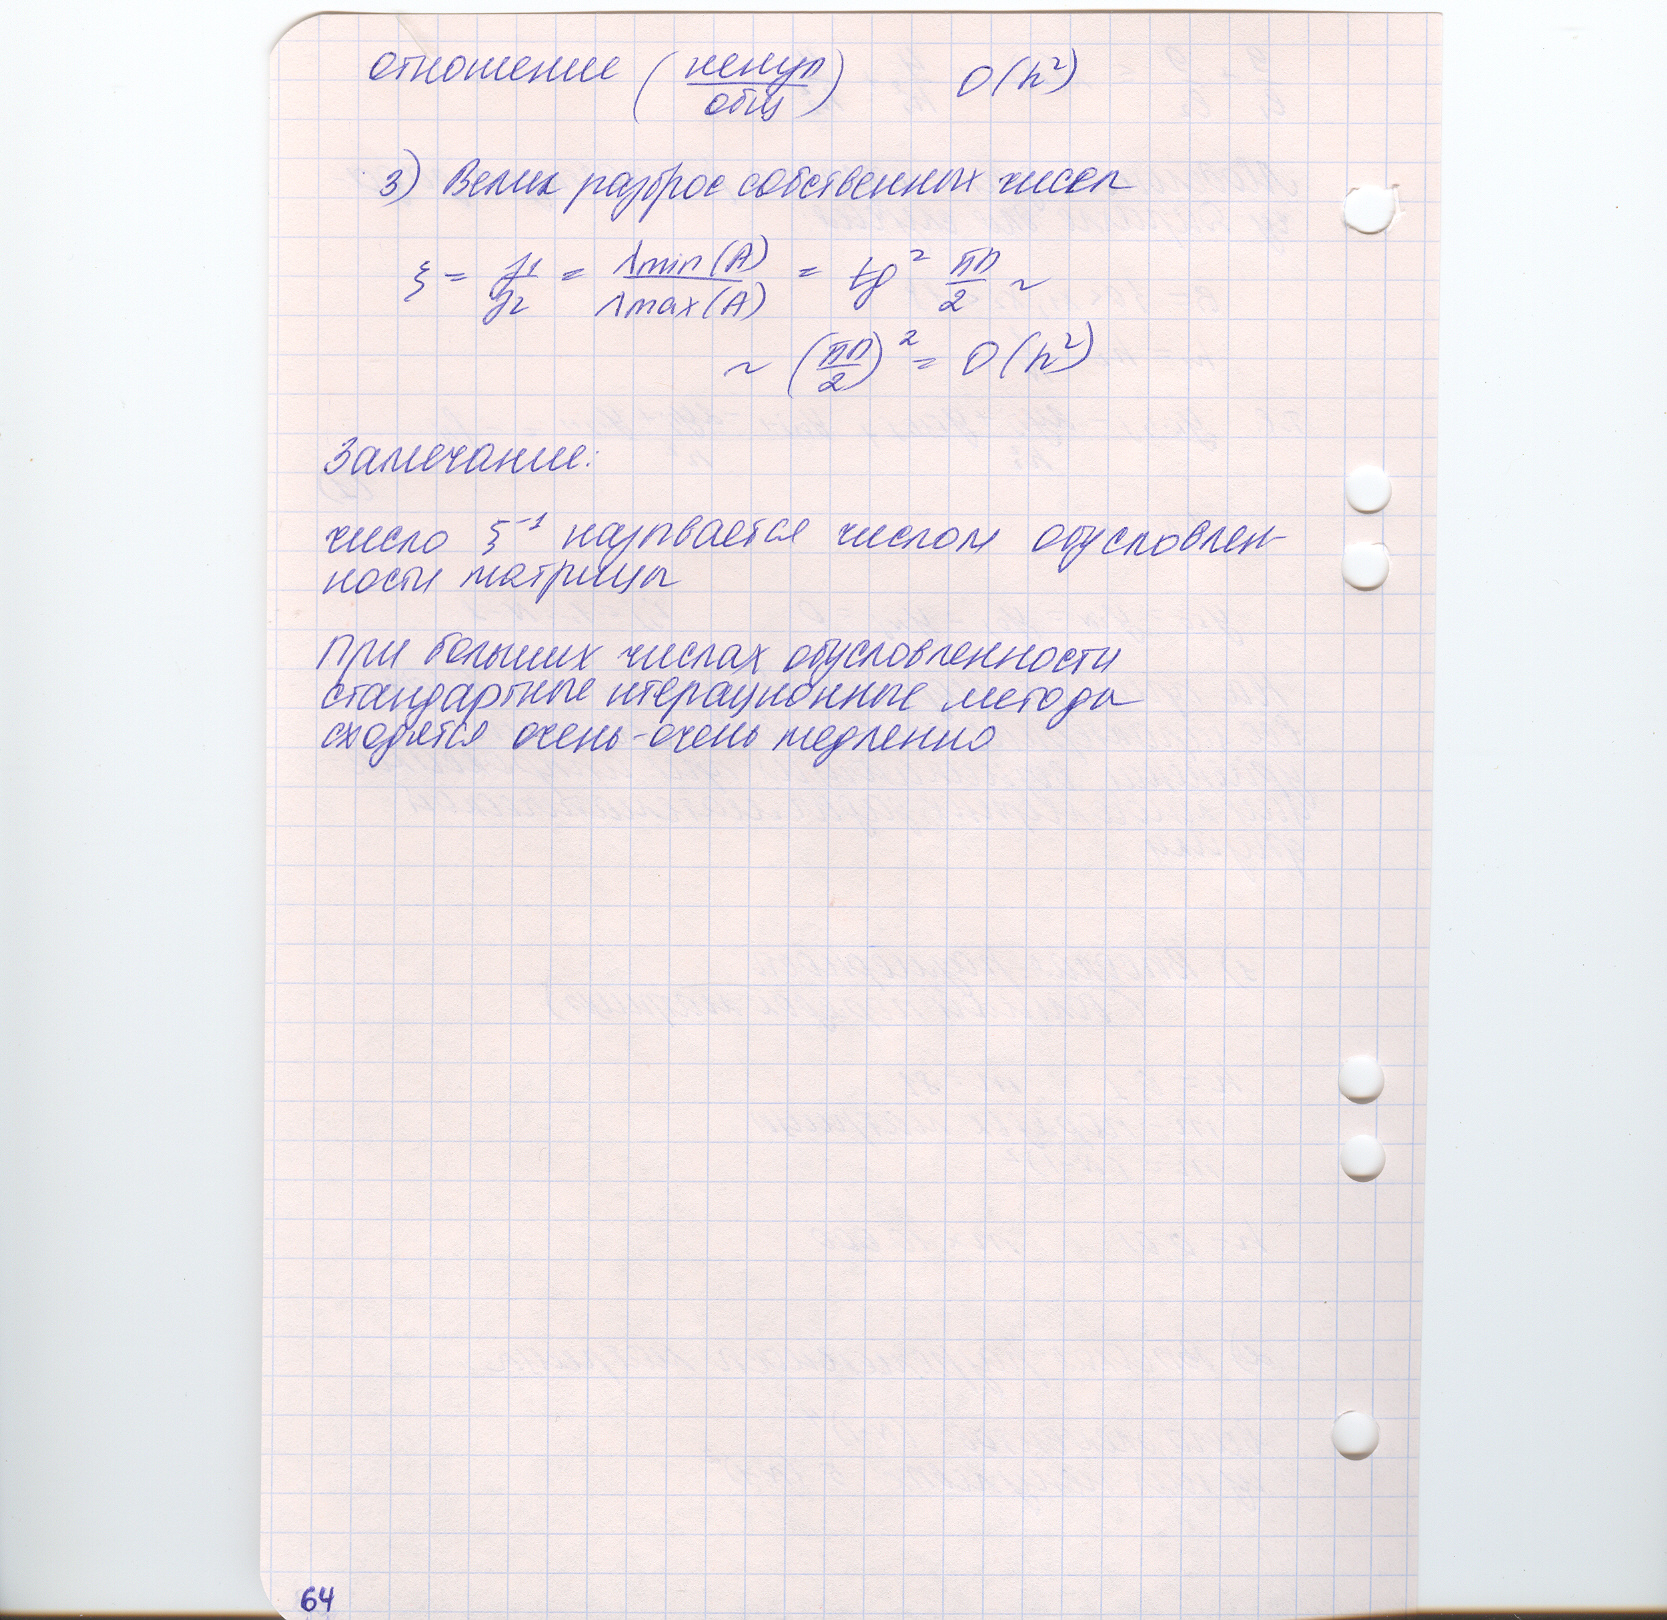 отношение (ненул/общ) O(h²)
3) Велик разброс собственных чисел
ξ = γ1/γ2 = λmin(A)/λmax(A) = tg² πh/2 ~
~ (πh/2)² = O(h²)
Замечание:
число ξ⁻¹ называется числом обусловлен-
ности матрицы
При больших числах обусловленности
стандартные итерационные методы
сходятся очень-очень медленно
64